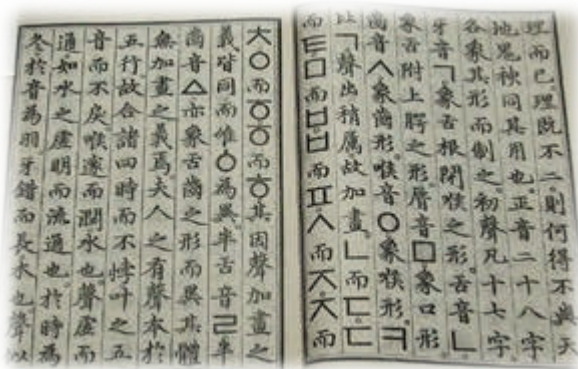 理而已。理旣不二。則何得不與天
地鬼神同其用也。正音二十八字。
各象其形而制之。初聲凡十七字。
牙音ㄱ象舌根閉喉之形。舌音ㄴ
象舌附上腭之形。脣音ㅁ象口形。
齒音ㅅ象齒形。喉音ㅇ象喉形。ㅋ
比ㄱ聲出稍厲故加畫。ㄴ而ㄷㄷ
而ㅌㅁ而ㅂㅂ而ㅍㅅ而ㅈㅈ而
ㅊㅇ而ㆆㆆ而ㅎ其因聲加畫之
義皆同而唯ㆁ為異。半舌音ㄹ半
齒音ㅿ亦象舌齒之形而異其體。
無加畫之義焉。夫人之有聲本於
五行。故合諸四時而不悖叶之五
音而不戾。喉邃而潤水也。聲虛而
通如水之虛明而流通也。於時為
冬於音為羽。牙錯而長木也。聲似